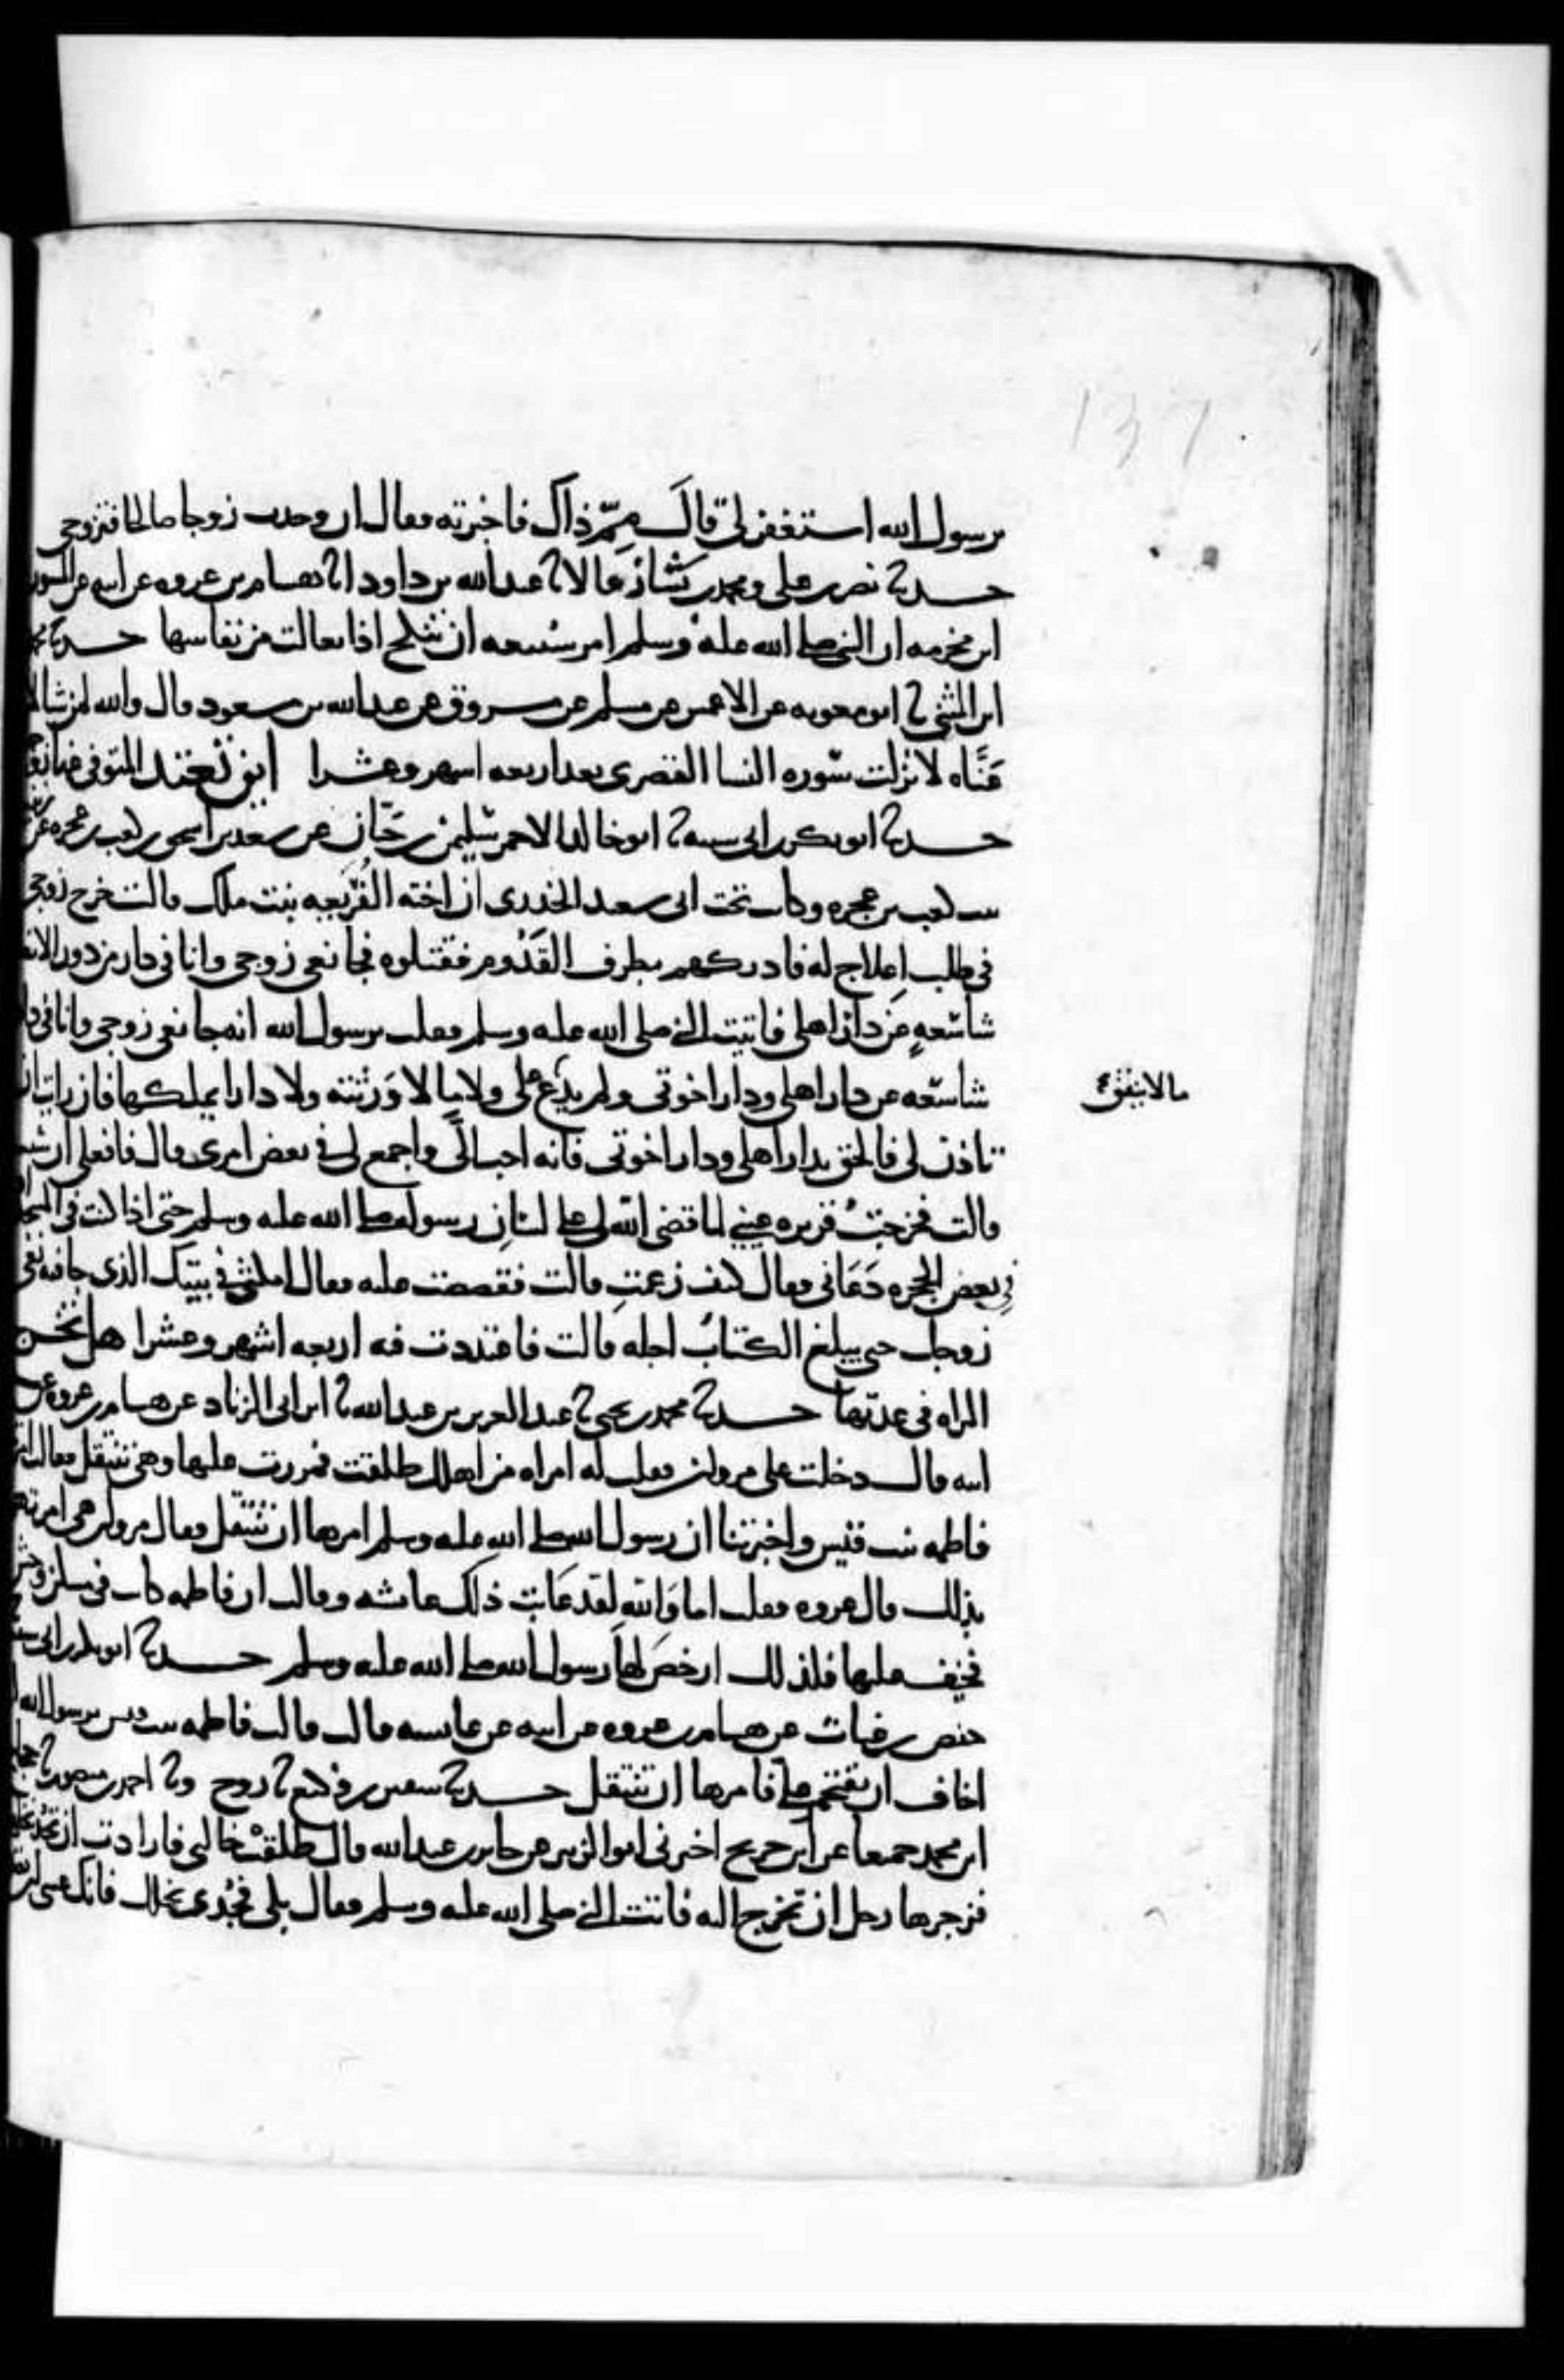 يرسول الله استغفر لي قال مِمَّ ذاك فاخبرته فقال ان وجدت زوجا صالحا فتزوجي
حدثنا نصر بن علي ومحمد بن بشار قالا نا عبد الله بن داود نا هشام بن عروه عن ابيه عن المسور
ابن مخرمه ان النبي صلى الله عليه وسلم امر سبيعه ان تنكح اذا تعالت من نفاسها حدثنا محمد
ابن المثنى نا ابو معويه عن الاعمش عن مسلم عن مسروق عن عبد الله بن مسعود قال والله لمن شا
لاعَنَّاه لانزلت سوره النسا القصرى بعد اربعه اشهر وعشرا اين تعتد المتوفى عنها
حدثنا ابو بكر بن ابي شيبه نا ابو خالد الاحمر سليمن بن حَيَّان عن سعد بن اسحق بن كعب بن عجره عن
بنت كعب بن عجره وكانت تحت ابي سعيد الخدري ان اخته الفُرَيعه بنت ملك قالت خرج زوجي
في طلب اعلاج له فادركهم بطرف القَدُوم فقتلوه فجا نعي زوجي وانا في دار من دور الانصار
شاسعهٍ عن دار اهلي فاتيت النبي صلى الله عليه وسلم فقلت يرسول الله انه جا نعي زوجي وانا في دار
شاسعه عن دار اهلي ودار اخوتي ولم يدع علي ولا مالا وَرثته ولا دارا يملكها فان رايت ان
مالا ينفق ع
تاذن لي فالحق بدار اهلي ودار اخوتي فانه احب الَيَّ واجمع لي في بعض امري قال فافعلي ان شئت
قالت فخرجتُ قريره عيني لما قضى الله لي على لسانِ رسوله صلى الله عليه وسلم حتى اذا كنت في المسجد
في بعض الحجره دَعَاني فقال كيف زعمتِ قالت فقصصت عليه فقال امكثي في بيتك الذي جا فيه نعي
زوجك حتى يبلغ الكتابُ اجله قالت فاعتددت فيه اربعه اشهر وعشرا هل تخرج
المراه في عدتها حدثنا محمد بن يحيى نا عبد العزيز بن عبد الله نا ابن ابي الزناد عن هشام بن عروه عن
ابيه قال دخلت على مروان فقلت له امراه من اهلك طلقت فمررت عليها وهي تنتقل فقالت امرتنا
فاطمه بنت قيس واخبرتنا ان رسول الله صلى الله عليه وسلم امرها ان تنتقل فقال مروان هي امرتهم
بذلك قال عروه فقلت اما وَالله لقد عَابت ذلك عائشه وقالت ان فاطمه كانت في مسكن وحش
فخيف عليها فلذلك ارخصَ لهَا رسول الله صلى الله عليه وسلم حدثنا ابو بكر بن ابي شيبه
حفص بن غياث عن هشام بن عروه عن ابيه عن عائشه قالت قالت فاطمه بنت قيس يرسول الله
اخاف ان يقتحم علي فامرها ان تنتقل حدثنا سفين بن وكيع نا روح ونا احمد بن منصور نا حجاج
ابن محمد جميعا عن ابن جريج اخبرني ابو الزبير عن جابر بن عبد الله قال طلقتْ خالتي فارادت ان تجُد نخلها
فزجرها رجل ان تخرج اليه فاتت النبي صلى الله عليه وسلم فقال بلى فجُدي نخلك فانك عسى ان
137